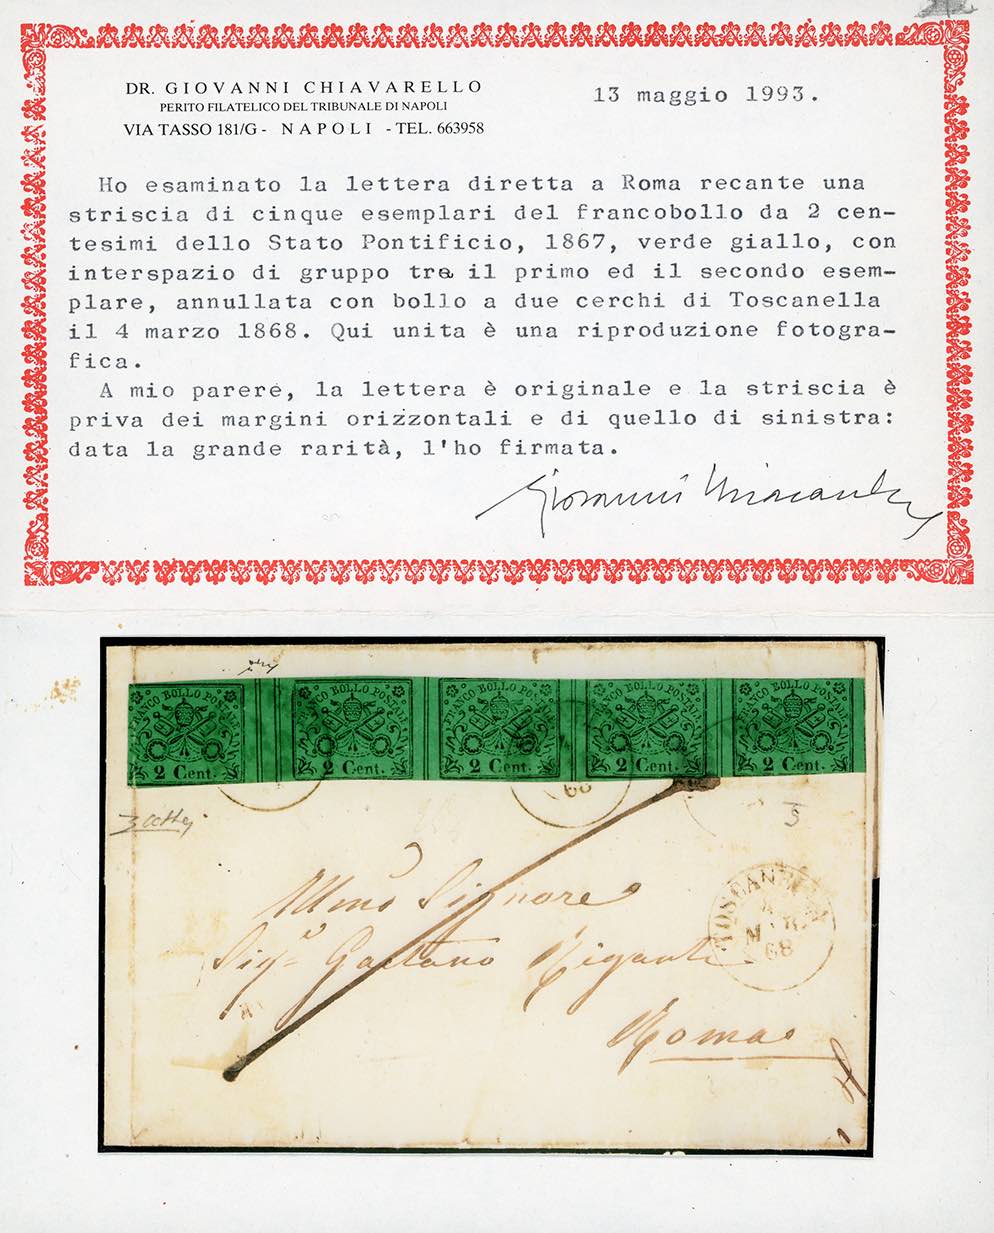 DR. GIOVANNI CHIAVARELLO
PERITO FILATELICO DEL TRIBUNALE DI NAPOLI
VIA TASSO 181/G - NAPOLI - TEL. 663958
13 maggio 1993.
Ho esaminato la lettera diretta a Roma recante una
striscia di cinque esemplari del francobollo da 2 cen-
tesimi dello Stato Pontificio, 1867, verde giallo, con
interspazio di gruppo tra il primo ed il secondo esem-
plare, annullata con bollo a due cerchi di Toscanella
il 4 marzo 1868. Qui unita è una riproduzione fotogra-
fica.
A mio parere, la lettera è originale e la striscia è
priva dei margini orizzontali e di quello di sinistra:
data la grande rarità, l'ho firmata.
FRANCO BOLLO POSTALE
2 Cent.
FRANCO BOLLO POSTALE
2 Cent.
FRANCO BOLLO POSTALE
2 Cent.
FRANCO BOLLO POSTALE
2 Cent.
FRANCO BOLLO POSTALE
2 Cent.
68
5
Illmo Signore
Sigr Gaetano Giganti
Roma
TOSCANELLA
4
MAR
68